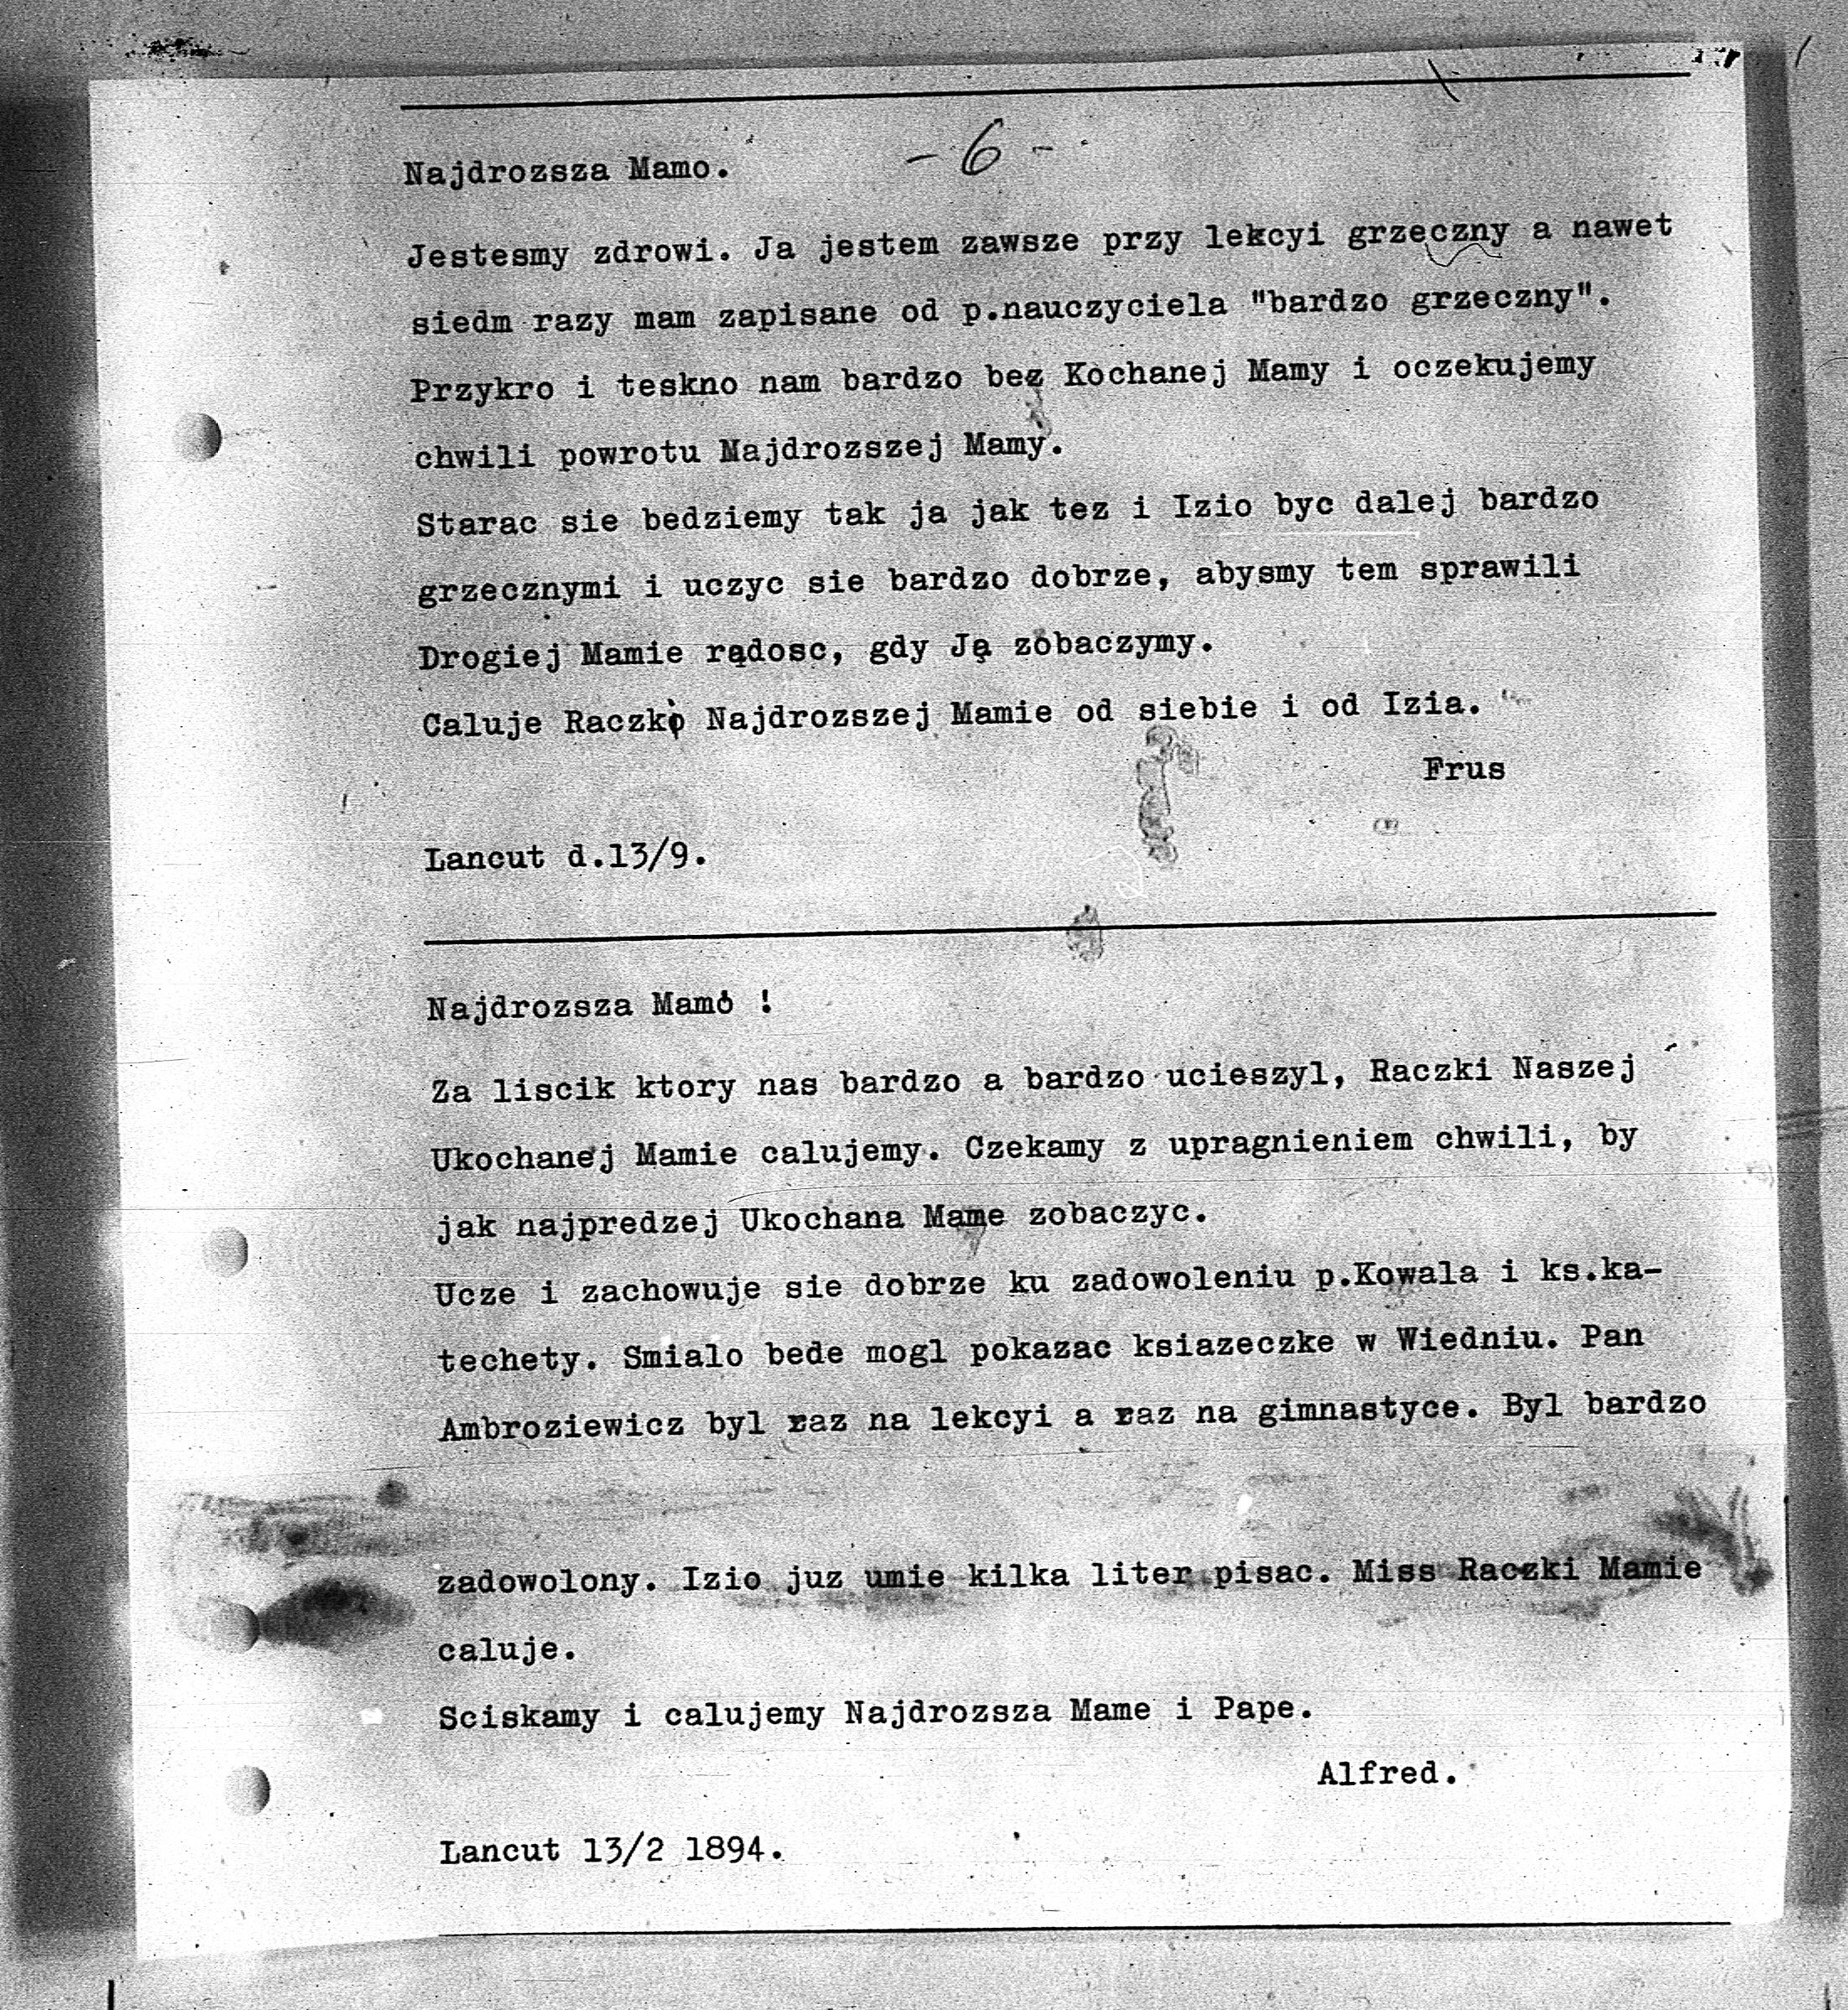 - 6 -
Najdrozsza Mamo.
Jestesmy zdrowi. Ja jestem zawsze przy lekcyi grzeczny a nawet
siedm razy mam zapisane od p.nauczyciela "bardzo grzeczny".
Przykro i teskno nam bardzo bez Kochanej Mamy i oczekujemy
chwili powrotu Najdrozszej Mamy.
Starac sie bedziemy tak ja jak tez i Izio byc dalej bardzo
grzecznymi i uczyc sie bardzo dobrze, abysmy tem sprawili
Drogiej Mamie radosc, gdy Ja zobaczymy.
Caluje Raczki Najdrozszej Mamie od siebie i od Izia.
Frus
Lancut d.13/9.
Najdrozsza Mamo !
Za liscik ktory nas bardzo a bardzo ucieszyl, Raczki Naszej
Ukochanej Mamie calujemy. Czekamy z upragnieniem chwili, by
jak najpredzej Ukochana Mame zobaczyc.
Ucze i zachowuje sie dobrze ku zadowoleniu p.Kowala i ks.ka-
techety. Smialo bede mogl pokazac ksiazeczke w Wiedniu. Pan
Ambroziewicz byl raz na lekcyi a raz na gimnastyce. Byl bardzo
zadowolony. Izio juz umie kilka liter pisac. Miss Raczki Mamie
caluje.
Sciskamy i calujemy Najdrozsza Mame i Pape.
Alfred.
Lancut 13/2 1894.